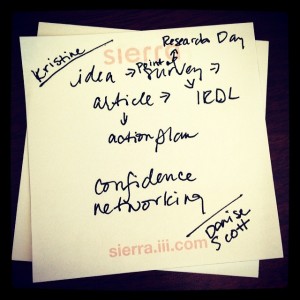 Research Day
Kristine
sierra
Point of
idea → survey →
article → IRDL
action plan
confidence
networking
Denise
Scott
sierra.iii.com